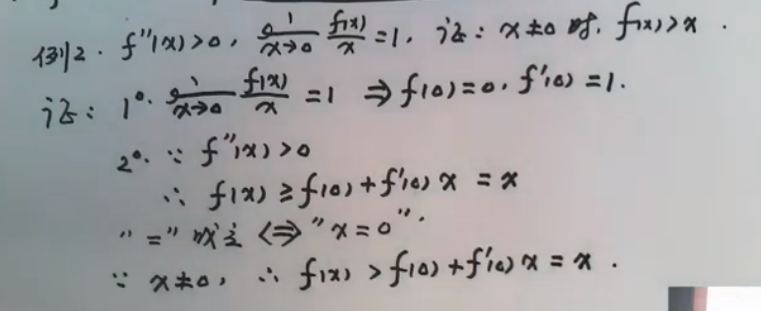 例2. f''(x)>0, lim x→0 f(x)/x =1, 证: x≠0 时, f(x)>x.
证: 1°. lim x→0 f(x)/x =1 ⇒ f(0)=0, f'(0)=1.
2°. ∵ f''(x)>0
∴ f(x) ≥ f(0)+f'(0)x = x
"=" 成立 ⇔ "x=0".
∵ x≠0, ∴ f(x) > f(0)+f'(0)x = x.